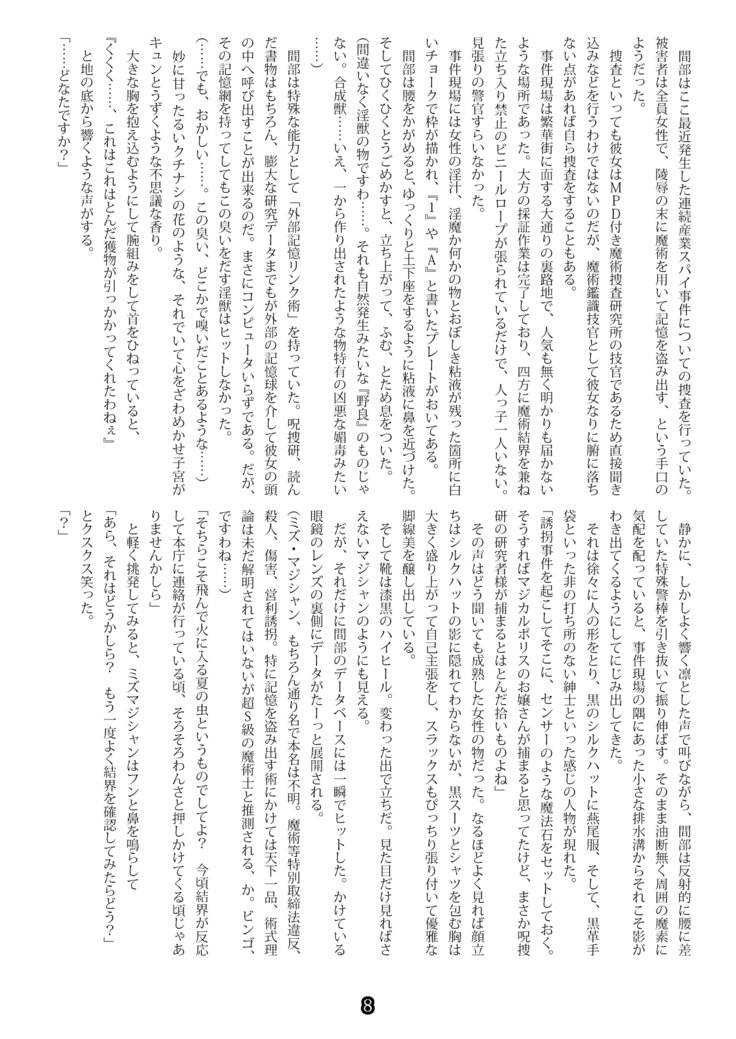 間部はここ最近発生した連続産業スパイ事件についての捜査を行っていた。
被害者は全員女性で、陵辱の末に魔術を用いて記憶を盗み出す、という手口の
ようだった。
捜査といっても彼女はMPD付き魔術捜査研究所の技官であるため直接聞き
込みなどを行うわけではないのだが、魔術鑑識技官として彼女なりに腑に落ち
ない点があれば自ら捜査をすることもある。
事件現場は繁華街に面する大通りの裏路地で、人気も無く明かりも届かない
ような場所であった。大方の採証作業は完了しており、四方に魔術結界を兼ね
た立ち入り禁止のビニールロープが張られているだけで、人っ子一人いない。
見張りの警官すらいなかった。
事件現場には女性の淫汁、淫魔か何かの物とおぼしき粘液が残った箇所に白
いチョークで枠が描かれ、『1』や『A』と書いたプレートがおいてある。
間部は腰をかがめると、ゆっくりと土下座をするように粘液に鼻を近づけた。
そしてひくひくとうごめかすと、立ち上がって、ふむ、とため息をついた。
(間違いなく淫獣の物ですわ……。それも自然発生みたいな『野良』のものじゃ
ない。合成獣……いえ、一から作り出されたような物特有の凶悪な媚毒みたい
……)
間部は特殊な能力として「外部記憶リンク術」を持っていた。呪捜研、読ん
だ書物はもちろん、膨大な研究データまでもが外部の記憶球を介して彼女の頭
の中へ呼び出すことが出来るのだ。まさにコンピュータいらずである。だが、
その記憶網を持ってしてもこの臭いをだす淫獣はヒットしなかった。
(……でも、おかしい……。この臭い、どこかで嗅いだことあるような……)
妙に甘ったるいクチナシの花のような、それでいて心をざわめかせ子宮が
キュンとうずくような不思議な香り。
大きな胸を抱え込むようにして腕組みをして首をひねっていると、
『くくく……、これはこれはとんだ獲物が引っかかってくれたわねぇ』
と地の底から響くような声がする。
「……どなたですか?」
静かに、しかしよく響く凛とした声で叫びながら、間部は反射的に腰に差
していた特殊警棒を引き抜いて振り伸ばす。そのまま油断無く周囲の魔素に
気配を配っていると、事件現場の隅にあった小さな排水溝からそれこそ影が
わき出てくるようにしてにじみ出してきた。
それは徐々に人の形をとり、黒のシルクハットに燕尾服、そして、黒革手
袋といった非の打ち所のない紳士といった感じの人物が現れた。
「誘拐事件を起こしてそこに、センサーのような魔法石をセットしておく。
そうすればマジカルポリスのお嬢さんが捕まると思ってたけど、まさか呪捜
研の研究者様が捕まるとはとんだ拾いものよね」
その声はどう聞いても成熟した女性の物だった。なるほどよく見れば顔立
ちはシルクハットの影に隠れてわからないが、黒スーツとシャツを包む胸は
大きく盛り上がって自己主張をし、スラックスもぴっちり張り付いて優雅な
脚線美を醸し出している。
そして靴は漆黒のハイヒール。変わった出で立ちだ。見た目だけ見ればさ
えないマジシャンのようにも見える。
だが、それだけに間部のデータベースには一瞬でヒットした。かけている
眼鏡のレンズの裏側にデータがたーっと展開される。
(ミズ・マジシャン、もちろん通り名で本名は不明。魔術等特別取締法違反、
殺人、傷害、営利誘拐。特に記憶を盗み出す術にかけては天下一品、術式理
論は未だ解明されてはいないが超S級の魔術士と推測される、か。ビンゴ、
ですわね……)
「そちらこそ飛んで火に入る夏の虫というものでしてよ? 今頃結界が反応
して本庁に連絡が行っている頃、そろそろわんさと押しかけてくる頃じゃあ
りませんかしら」
と軽く挑発してみると、ミズマジシャンはフンと鼻を鳴らして
「あら、それはどうかしら? もう一度よく結界を確認してみたらどう?」
とクスクス笑った。
「?」
8